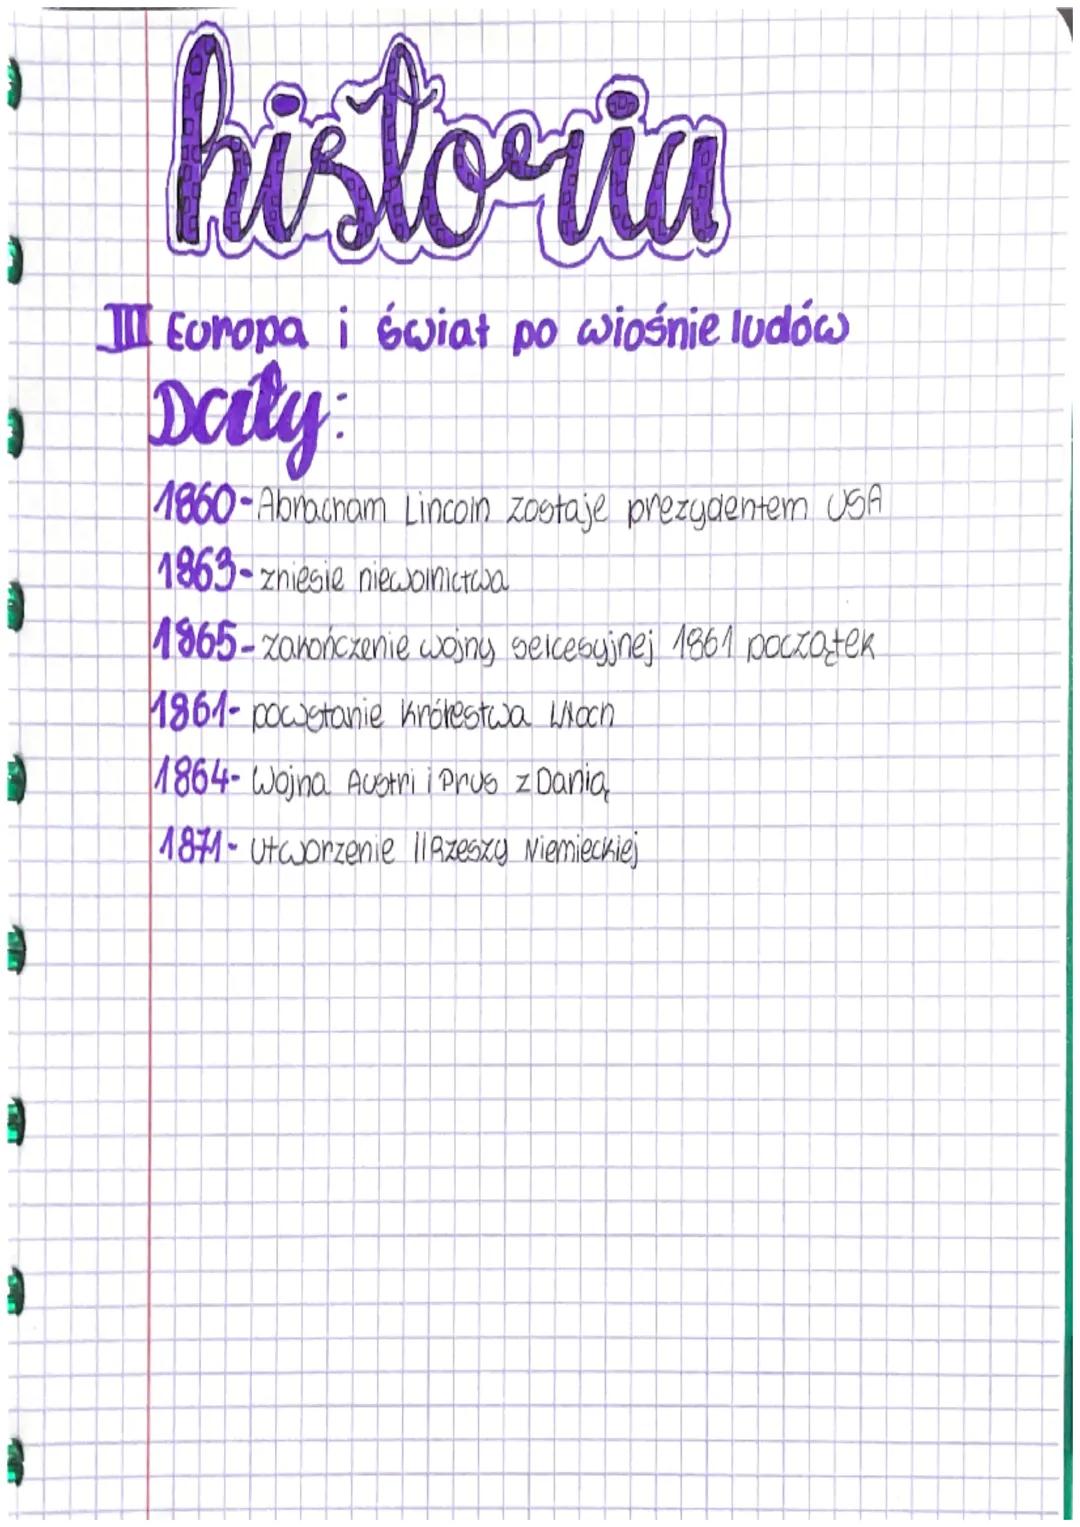 historia
III Europa i świat po wiośnie ludów
Daty:
1860-Abracham Lincoln zostaje prezydentem USA
1863-zniesie niewolnictwa
1865-zakończenie wojny selcesyjnej 1861 początek
1861- powstanie Królestwa Włoch
1864- Wojna Austri i Prus z Danią
1871- utworzenie II Rzeszy Niemieckiej